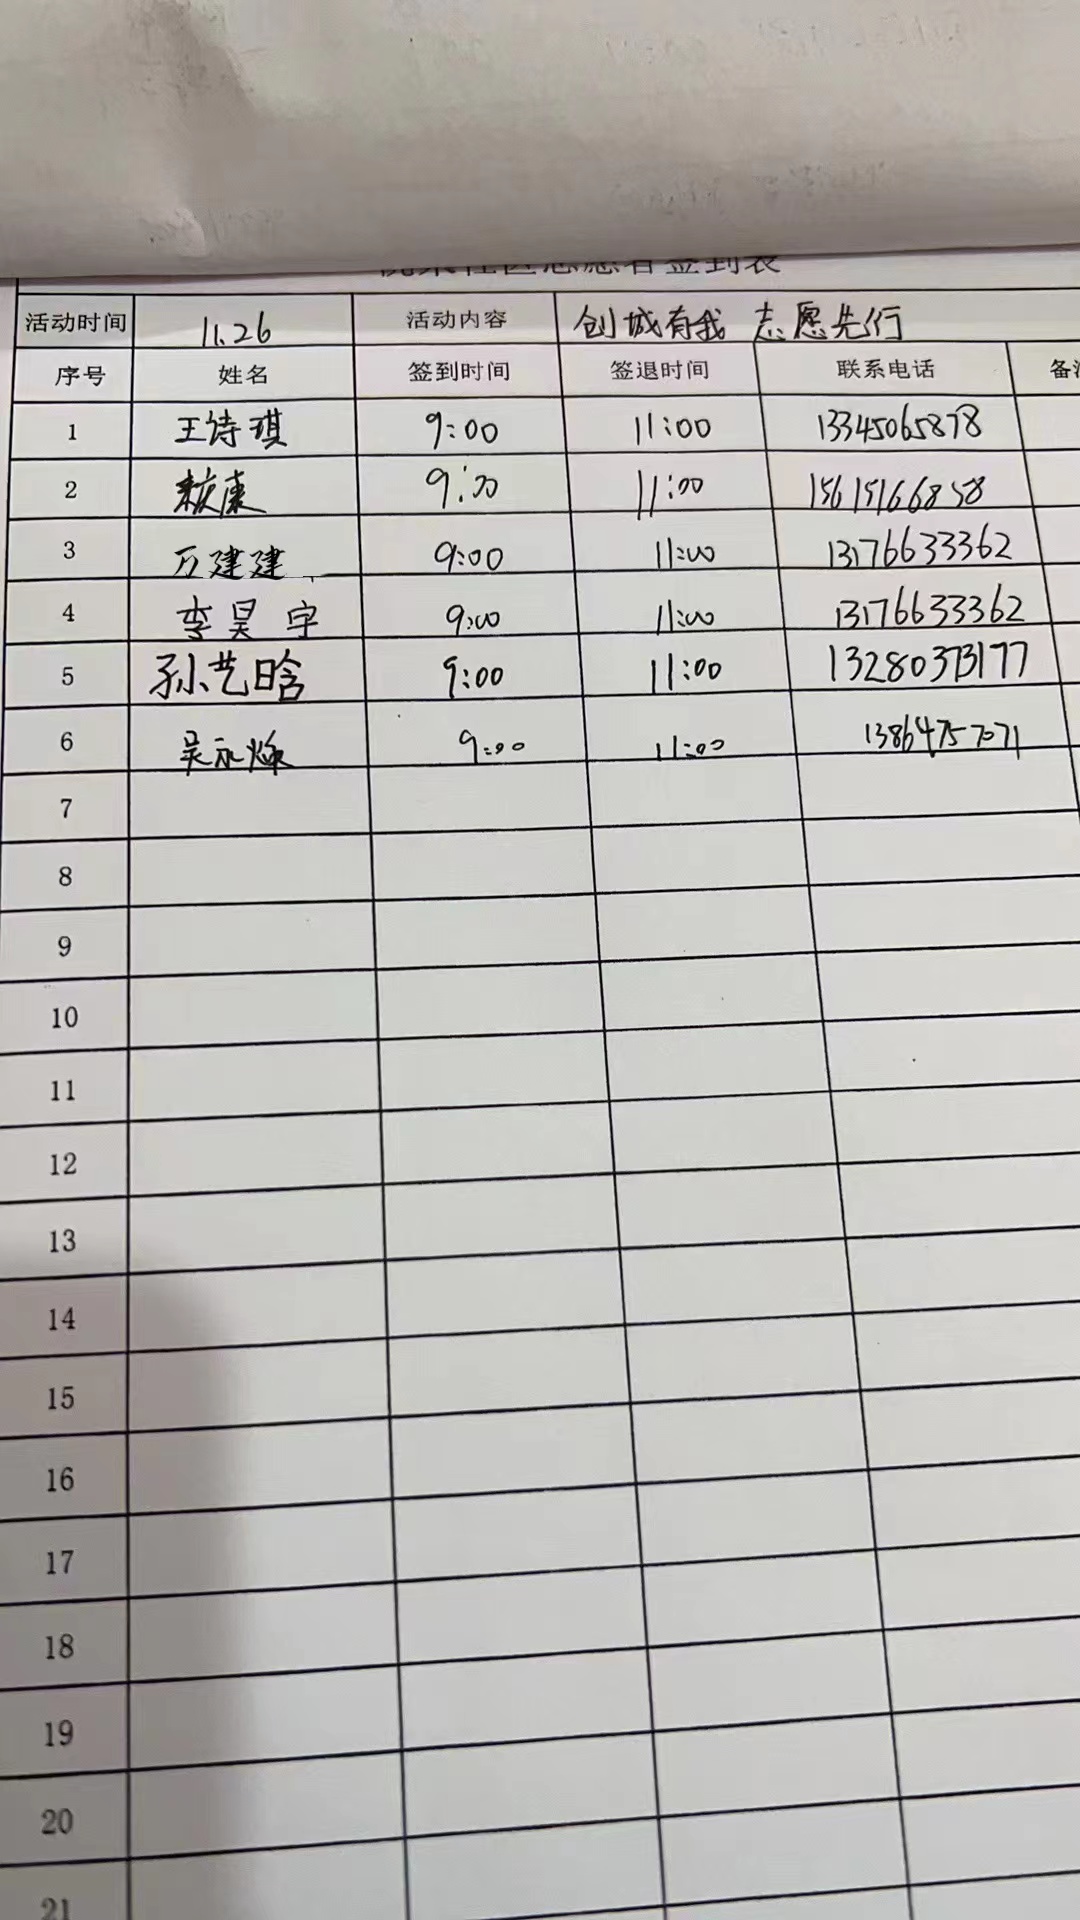 社区志愿者签到表
活动时间 11.26 活动内容 创城有我 志愿先行
序号 姓名 签到时间 签退时间 联系电话 备注
1 王诗琪 9:00 11:00 13345065878
2 康 9:00 11:00 15615166858
3 万建建 9:00 11:00 13176633362
4 李昊宇 9:00 11:00 13176633362
5 孙艺晗 9:00 11:00 13280373177
6 吴永焕 9:00 11:00 13864757071
7
8
9
10
11
12
13
14
15
16
17
18
19
20
21